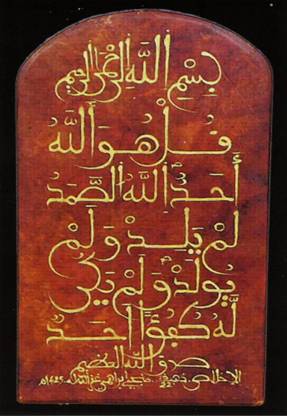 بسم الله الرحمن الرحيم
قل هو الله
أحد الله الصمد
لم يلد ولم
يولد ولم يكن
له كفوًا أحد
صدق الله العظيم
الإخلاص